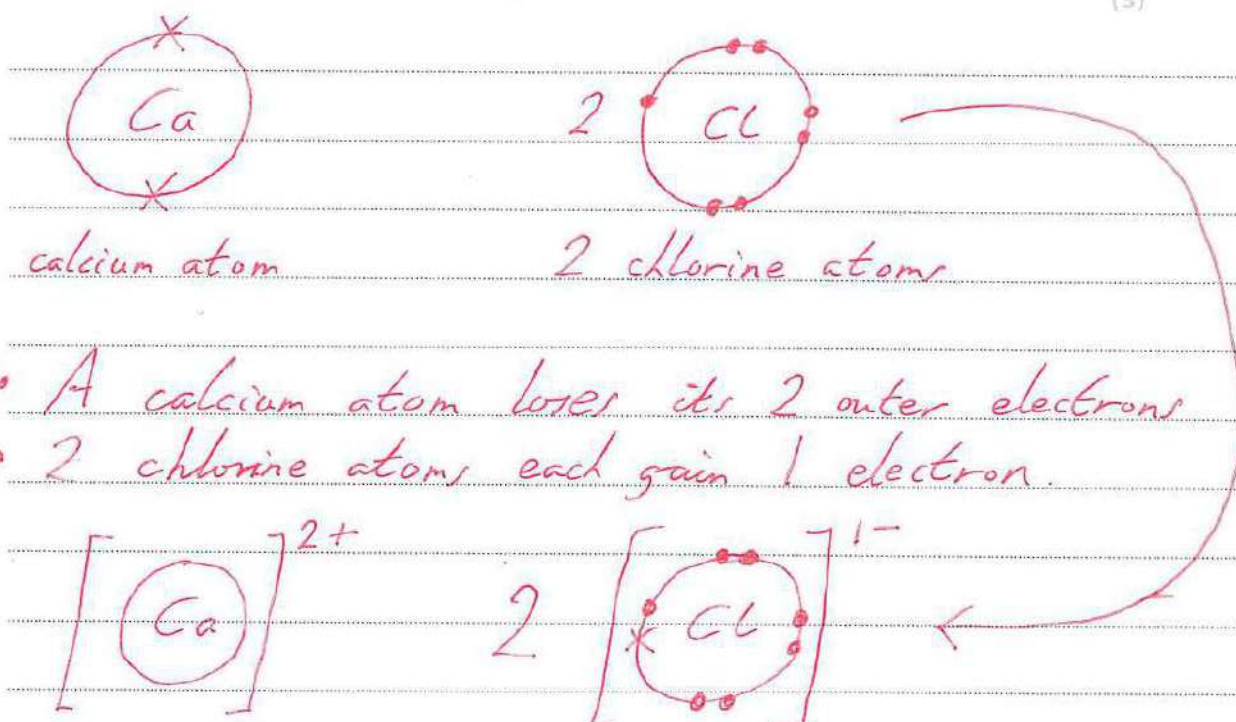 (5)
Ca 2 Cl
calcium atom 2 chlorine atoms
• A calcium atom loses its 2 outer electrons
• 2 chlorine atoms each gain 1 electron.
[Ca]2+ 2 [Cl]1-